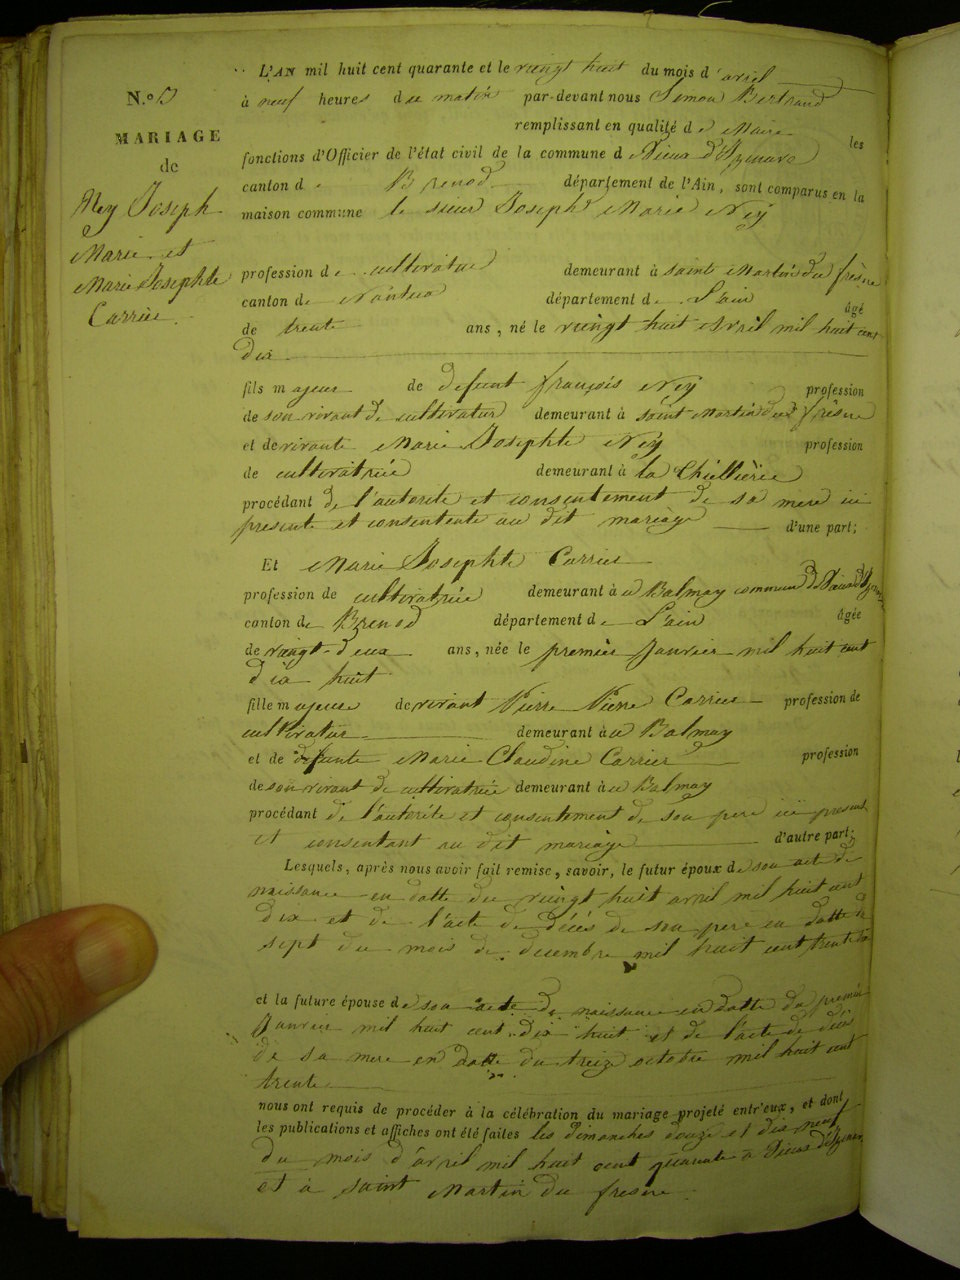 L'AN mil huit cent quarante et le vingt huit du mois d'avril
N.o 5
à neuf heures du matin par-devant nous Simon Bertrand
remplissant en qualité de Maire les
MARIAGE
fonctions d'Officier de l'état civil de la commune de Vieux d'Izenave
de
canton de Brenod département de l'Ain, sont comparus en la
Ney Joseph
maison commune le sieur Joseph Marie Ney
Marie et
Marie Josephte
Carrier
profession de cultivateur demeurant à saint Martin du frêsne
canton de Nantua département de L'ain âgé
de trente ans, né le vingt huit Avril mil huit cent
dix
fils majeur de defunt françois Ney profession
de son vivant de cultivatur demeurant à saint Martin du frêsne
et de vivante Marie Josephte Ney profession
de cultivatrice demeurant à la
procédant de l'autorité et consentement de sa mere ici
presente et consentente au dit mariage d'une part;
Et Marie Josephte Carrier
profession de cultivatrice demeurant à a Balmay commune de Vieux d'Izenave
canton de Brenod département de L'ain âgée
de vingt-deux ans, née le premier Janvier mil huit cent
dix huit
fille majeure de vivant Pierre Carrier profession de
cultivatur demeurant à a Balmay
et de defunte Marie Claudine Carrier profession
de son vivant de cultivatrice demeurant à a Balmay
procédant de l'autorité et consentement de son pere ici present
et consentant au dit mariage d'autre part;
Lesquels, après nous avoir fait remise, savoir, le futur époux de son act de
naissance en datte du vingt huit avril mil huit cent
dix et de l'acte de décès de son pere en datte du
sept du mois de decembre mil huit cent trente
et la future épouse de son acte de naissance en datte du premier
Janvier mil huit cent dix huit et de l'acte de décès
de sa mere en datte du treize octobre mil huit cent
trente
nous ont requis de procéder à la célébration du mariage projeté entr'eux, et dont
les publications et affiches ont été faites les dimanches douze et dix neuf
du mois d'avril mil huit cent quarante a Vieux d'Izenave
et à saint Martin du fresne